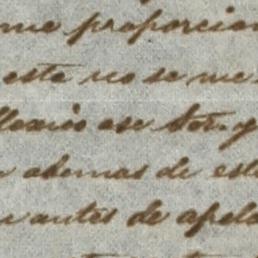 me proporcion
este no se me
flexio ese Sor. y
ademas de est
antes de apela